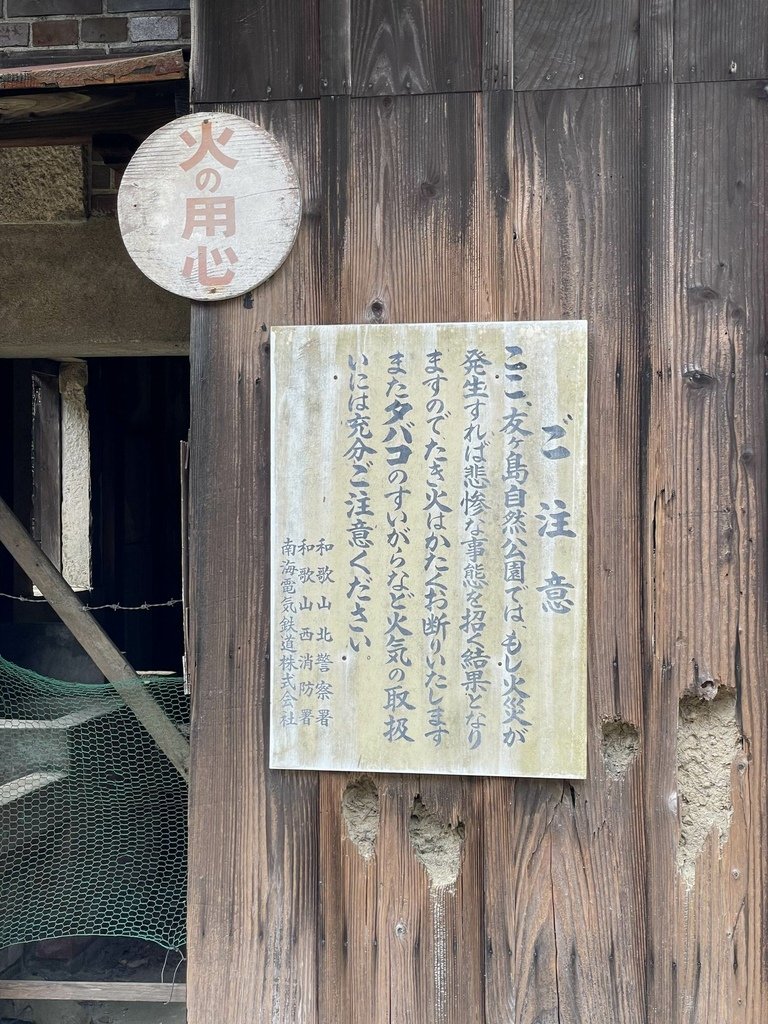 火の用心
ご注意
ここ、友ヶ島自然公園では、もし火災が
発生すれば悲惨な事態を招く結果となり
ますので、たき火はかたくお断りいたします
またタバコのすいがらなど火気の取扱
いには充分ご注意ください。
和歌山北警察署
和歌山西消防署
南海電気鉄道株式会社